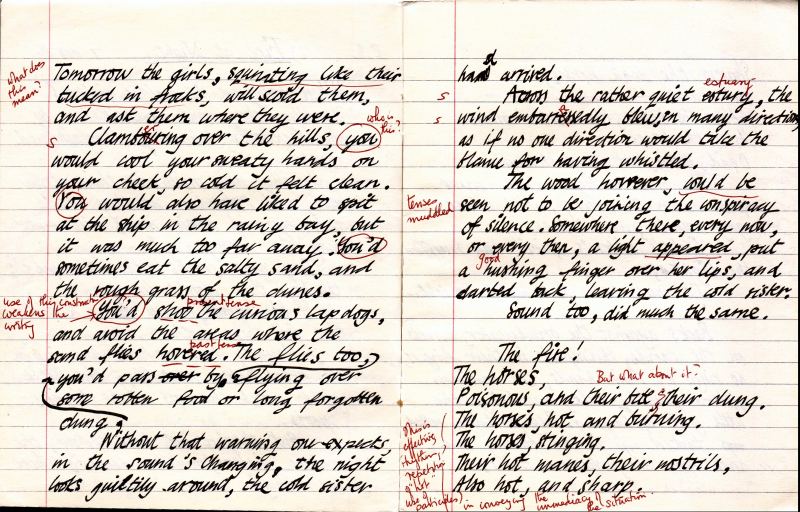 what does
this
mean?
Tomorrow the girls, squinting like their
tucked in frocks, will scold them,
and ask them where they were.
who is
this?
s
Clambouring over the hills, you
would cool your sweaty hands on
your cheek, so cold it felt clean.
You would also have liked to spit
at the ship in the rainy bay, but
it was much too far away. You'd
sometimes eat the salty sand, and
the rough grass of the dunes.
use of this construct
weakens the
writing
present tense
You'd stop the curious lap dogs,
and avoid the areas where the
past tense
sand flies hovered. The flies too,
you'd pass over by, flying over
some rotten food or long forgotten
dung.
Without that warning one expects
in the sound's changing, the night
looks guiltily around, the cold sister
had arrived.
estuary
s
Across the rather quiet estury, the
s
wind embarrassedly blew, in many directions
as if no one direction would take the
blame for having whistled.
The wood however, could be
tenses
muddled
seen not to be joining the conspiracy
of silence. Somewhere there, every now,
or every then, a light appeared, put
good
a hushing finger over her lips, and
darted back, leaving the cold sister.
Sound too, did much the same.
The fire!
The horses,
But what about it?
Poisonous, and their bite, their dung.
The horses, hot and burning.
The horses, stinging.
Their hot manes, their nostrils,
Also hot, and sharp.
This is
effective
rhythm,
repetition
of 'hot'
use of
participles
in conveying the immediacy of
the situation.